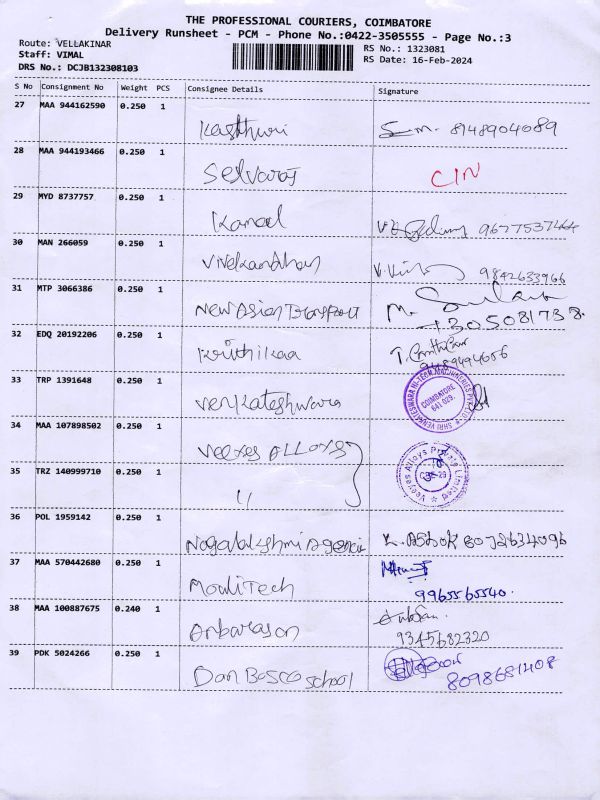 THE PROFESSIONAL COURIERS, COIMBATORE
Delivery Runsheet - PCM - Phone No.:0422-3505555 - Page No.:3
Route: VELLAKINAR
Staff: VIMAL
DRS No.: DCJB132308103
RS No.: 1323081
RS Date: 16-Feb-2024
S No Consignment No Weight PCS Consignee Details Signature
27 MAA 944162590 0.250 1
Kasthuri 8148904089
28 MAA 944193466 0.250 1
Selvaraj CIN
29 MYD 8737757 0.250 1
Kamal
30 MAN 266059 0.250 1
Vivekandhan 9842633966
31 MTP 3066386 0.250 1
New Asian Transport
32 EDQ 20192206 0.250 1
Krithikaa
9489494656
33 TRP 1391648 0.250 1
Venkateshwara COIMBATORE 641 029.
34 MAA 107898502 1
Veeyes ALLOYS Veeyes Alloys Private Limited
35 TRZ 140999710 0.250 1
〃
36 POL 1959142 0.250 1
Nagalakshmi Agencie K. ASHOK 8072634096
37 MAA 570442680 0.250 1
MouliTech
9965565540.
38 MAA 100887675 0.240 1
Anbarason
9345682320
39 PDK 5024266 0.250 1
Don Bosco school 8098681408